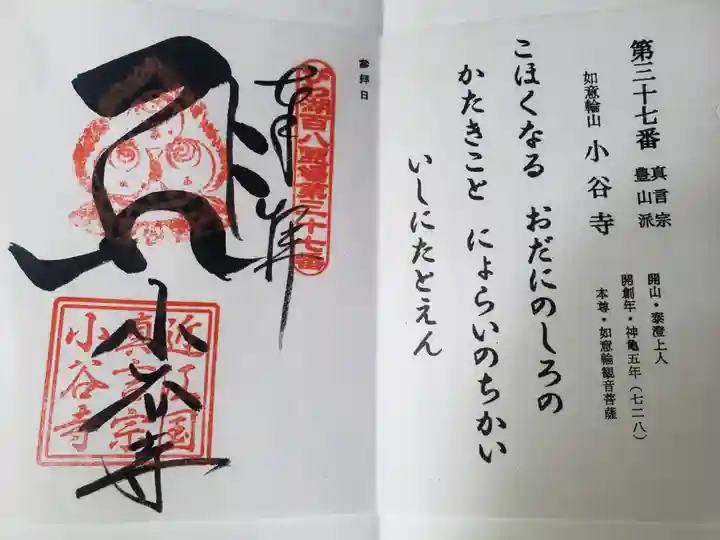 第三十七番 真言宗
豊山派
如意輪山 小谷寺
開山・泰澄上人
開創年・神亀五年(七二八)
本尊・如意輪観音菩薩
こほくなる おだにのしろの
かたきこと によらいのちかい
いしにたとえん
参拝日
奉拝
百八霊場第三十七番
小谷寺
近江国
真言宗
小谷寺